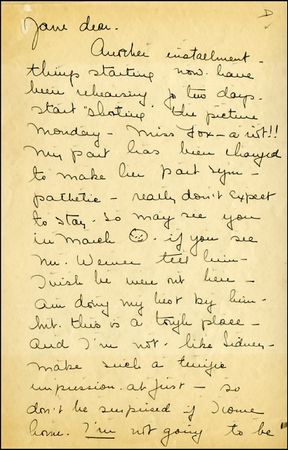 D
Jane dear.
Another installment -
things starting now. have
been rehearsing for two days.
start "shooting" the picture
Monday - Miss Fox - a riot!!
My part has been changed
to make her part sym-
pathetic - really don't expect
to stay. So may see you
in March ☹. if you see
Mr. Werner tell him -
I wish he were out here -
am doing my best by him -
but. this is a tough place -
And I'm not. like Sidney -
make such a terrific
impression. at first - so
don't be surprised if I come
home. I'm not going to be